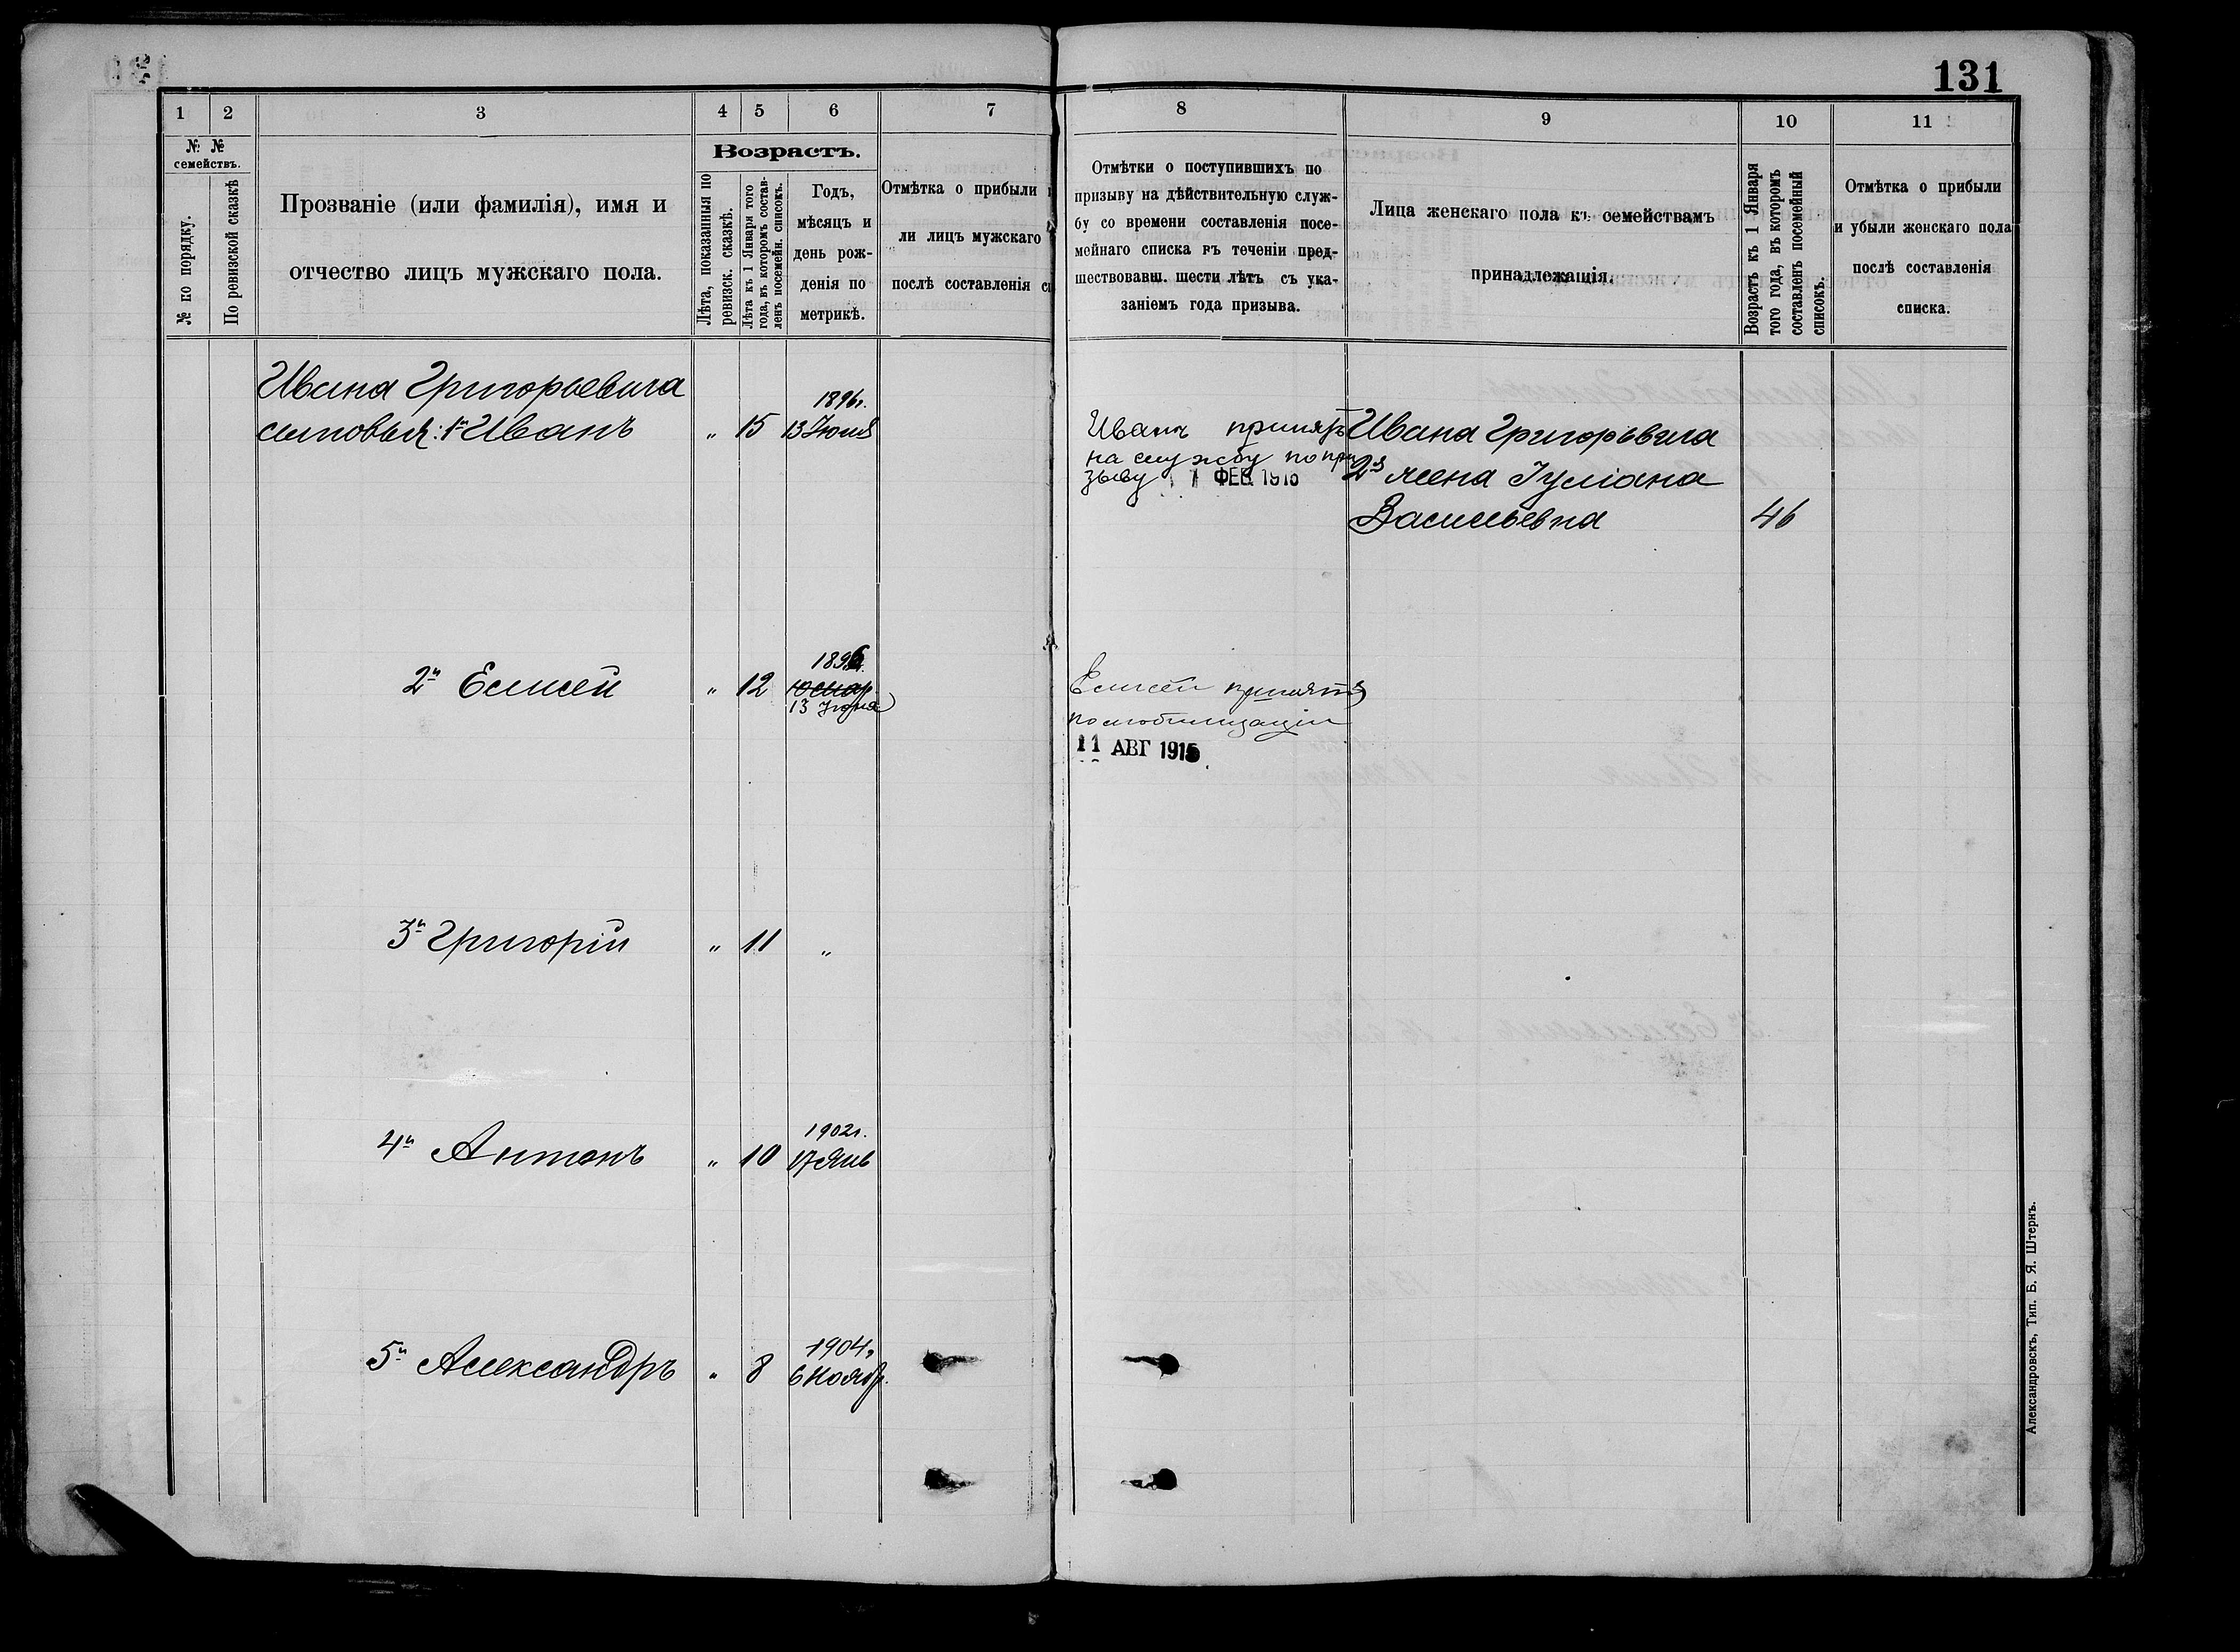 131
1 2 3 4 5 6 7 8 9 10 11
№ №
семействъ.
№ по порядку.
По ревизской сказкѣ
Прозваніе (или фамилія), имя и
отчество лицъ мужскаго пола.
Возрастъ.
Лѣта, показанныя по
ревизск. сказкѣ.
Лѣта къ 1 Января того
года, въ которомъ состав-
ленъ посемейн. списокъ.
Годъ,
мѣсяцъ и
день рож-
денія по
метрикѣ.
Отмѣтка о прибыли
ли лицъ мужскаго
послѣ составленія
Отмѣтки о поступившихъ по
призыву на дѣйствительную служ-
бу со времени составленія посе-
мейнаго списка въ теченіи пред-
шествовавш. шести лѣтъ съ ука-
заніемъ года призыва.
Лица женскаго пола къ семействамъ
принадлежащія.
Возрастъ къ 1 Января
того года, въ которомъ
составленъ посемейный
списокъ.
Отмѣтка о прибыли
и убыли женскаго пола
послѣ составленія
списка.
Ивана Григорьевича
сыновья: 1й Иванъ " 15
1896г.
13 Іюня
Иванъ принятъ
на службу по при
зыву ФЕВ 1916
Ивана Григорьевича
2я жена Іуліана
Васильевна 46
2й Елисей " 12
1896г.
13 Іюня
Елисей принятъ
по мобилизаціи
11 АВГ 1915
3й Григорій " 11 "
4й Антонъ " 10
1902г.
17 Янв
5й Александръ " 8
1904г.
6 Ноябр.
Александровскъ, Тип. Б. Я. Штернъ.